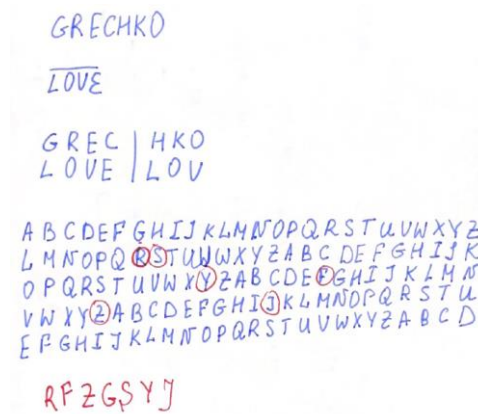 GRECHKO
LOVE
GREC | HKO
LOVE | LOV
A B C D E F G H I J K L M N O P Q R S T U V W X Y Z
L M N O P Q R S T U W W X Y Z A B C D E F G H I J K
O P Q R S T U V W X Y Z A B C D E F G H I J K L M N
V W X Y Z A B C D E F G H I J K L M N O P Q R S T U
E F G H I J K L M N O P Q R S T U V W X Y Z A B C D
RFZGSYJ